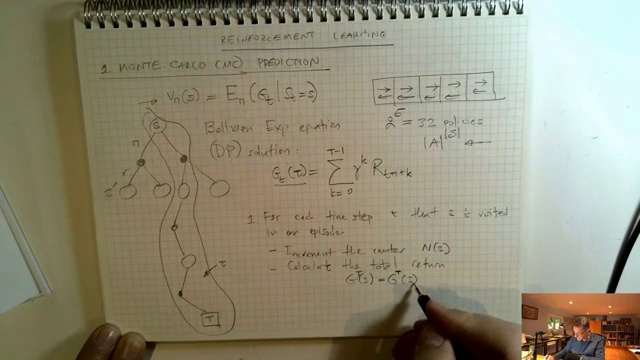 REINFORCEMENT LEARNING
1. MONTE-CARLO (MC) PREDICTION
V_π(s) = E_π(G_t | S_t = s)
2^5 = 32 policies
|A|^|S|
Bellman Exp. equation
(DP) solution:
G_t(τ) = Σ_{k=0}^{T-1} γ^k R_{t+1+k}
S
π
r
s'
τ
T
1 For each time step t that s is visited
in an episode
- Increment the counter N(s)
- Calculate the total return
G^T(s) = G^T(s)